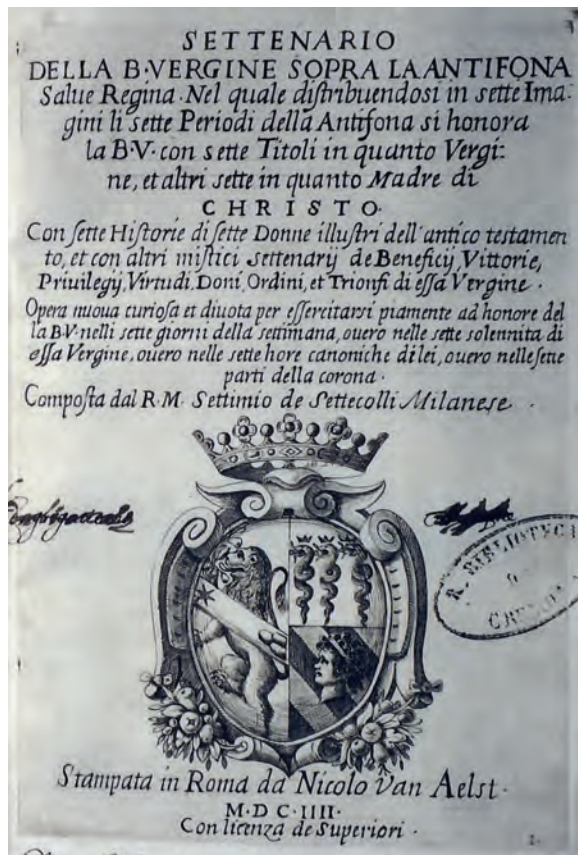 SETTENARIO
DELLA B·VERGINE SOPRA LA ANTIFONA
Salue Regina·Nel quale distribuendosi in sette Ima-
gini li sette Periodi della Antifona si honora
la B·V· con sette Titoli in quanto Vergi:
ne, et altri sette in quanto Madre di
CHRISTO·
Con sette Historie di sette Donne illustri dell'antico testamen
to, et con altri mistici settenarij de Beneficij, Vittorie,
Priuilegij, Virtudi, Doni, Ordini, et Trionfi di essa Vergine·
Opera nuoua curiosa et diuota per essercitarsi piamente ad honore del
la B·V· nelli sette giorni della settimana, ouero nelle sette solennita di
essa Vergine, ouero nelle sette hore canoniche di lei, ouero nelle sette
parti della corona·
Composta dal R·M· Settimio de Settecolli Milanese·
R. BIBLIOTECA
Stampata in Roma da Nicolo Van Aelst·
M·D C·IIII·
Con licenza de Superiori·
1·